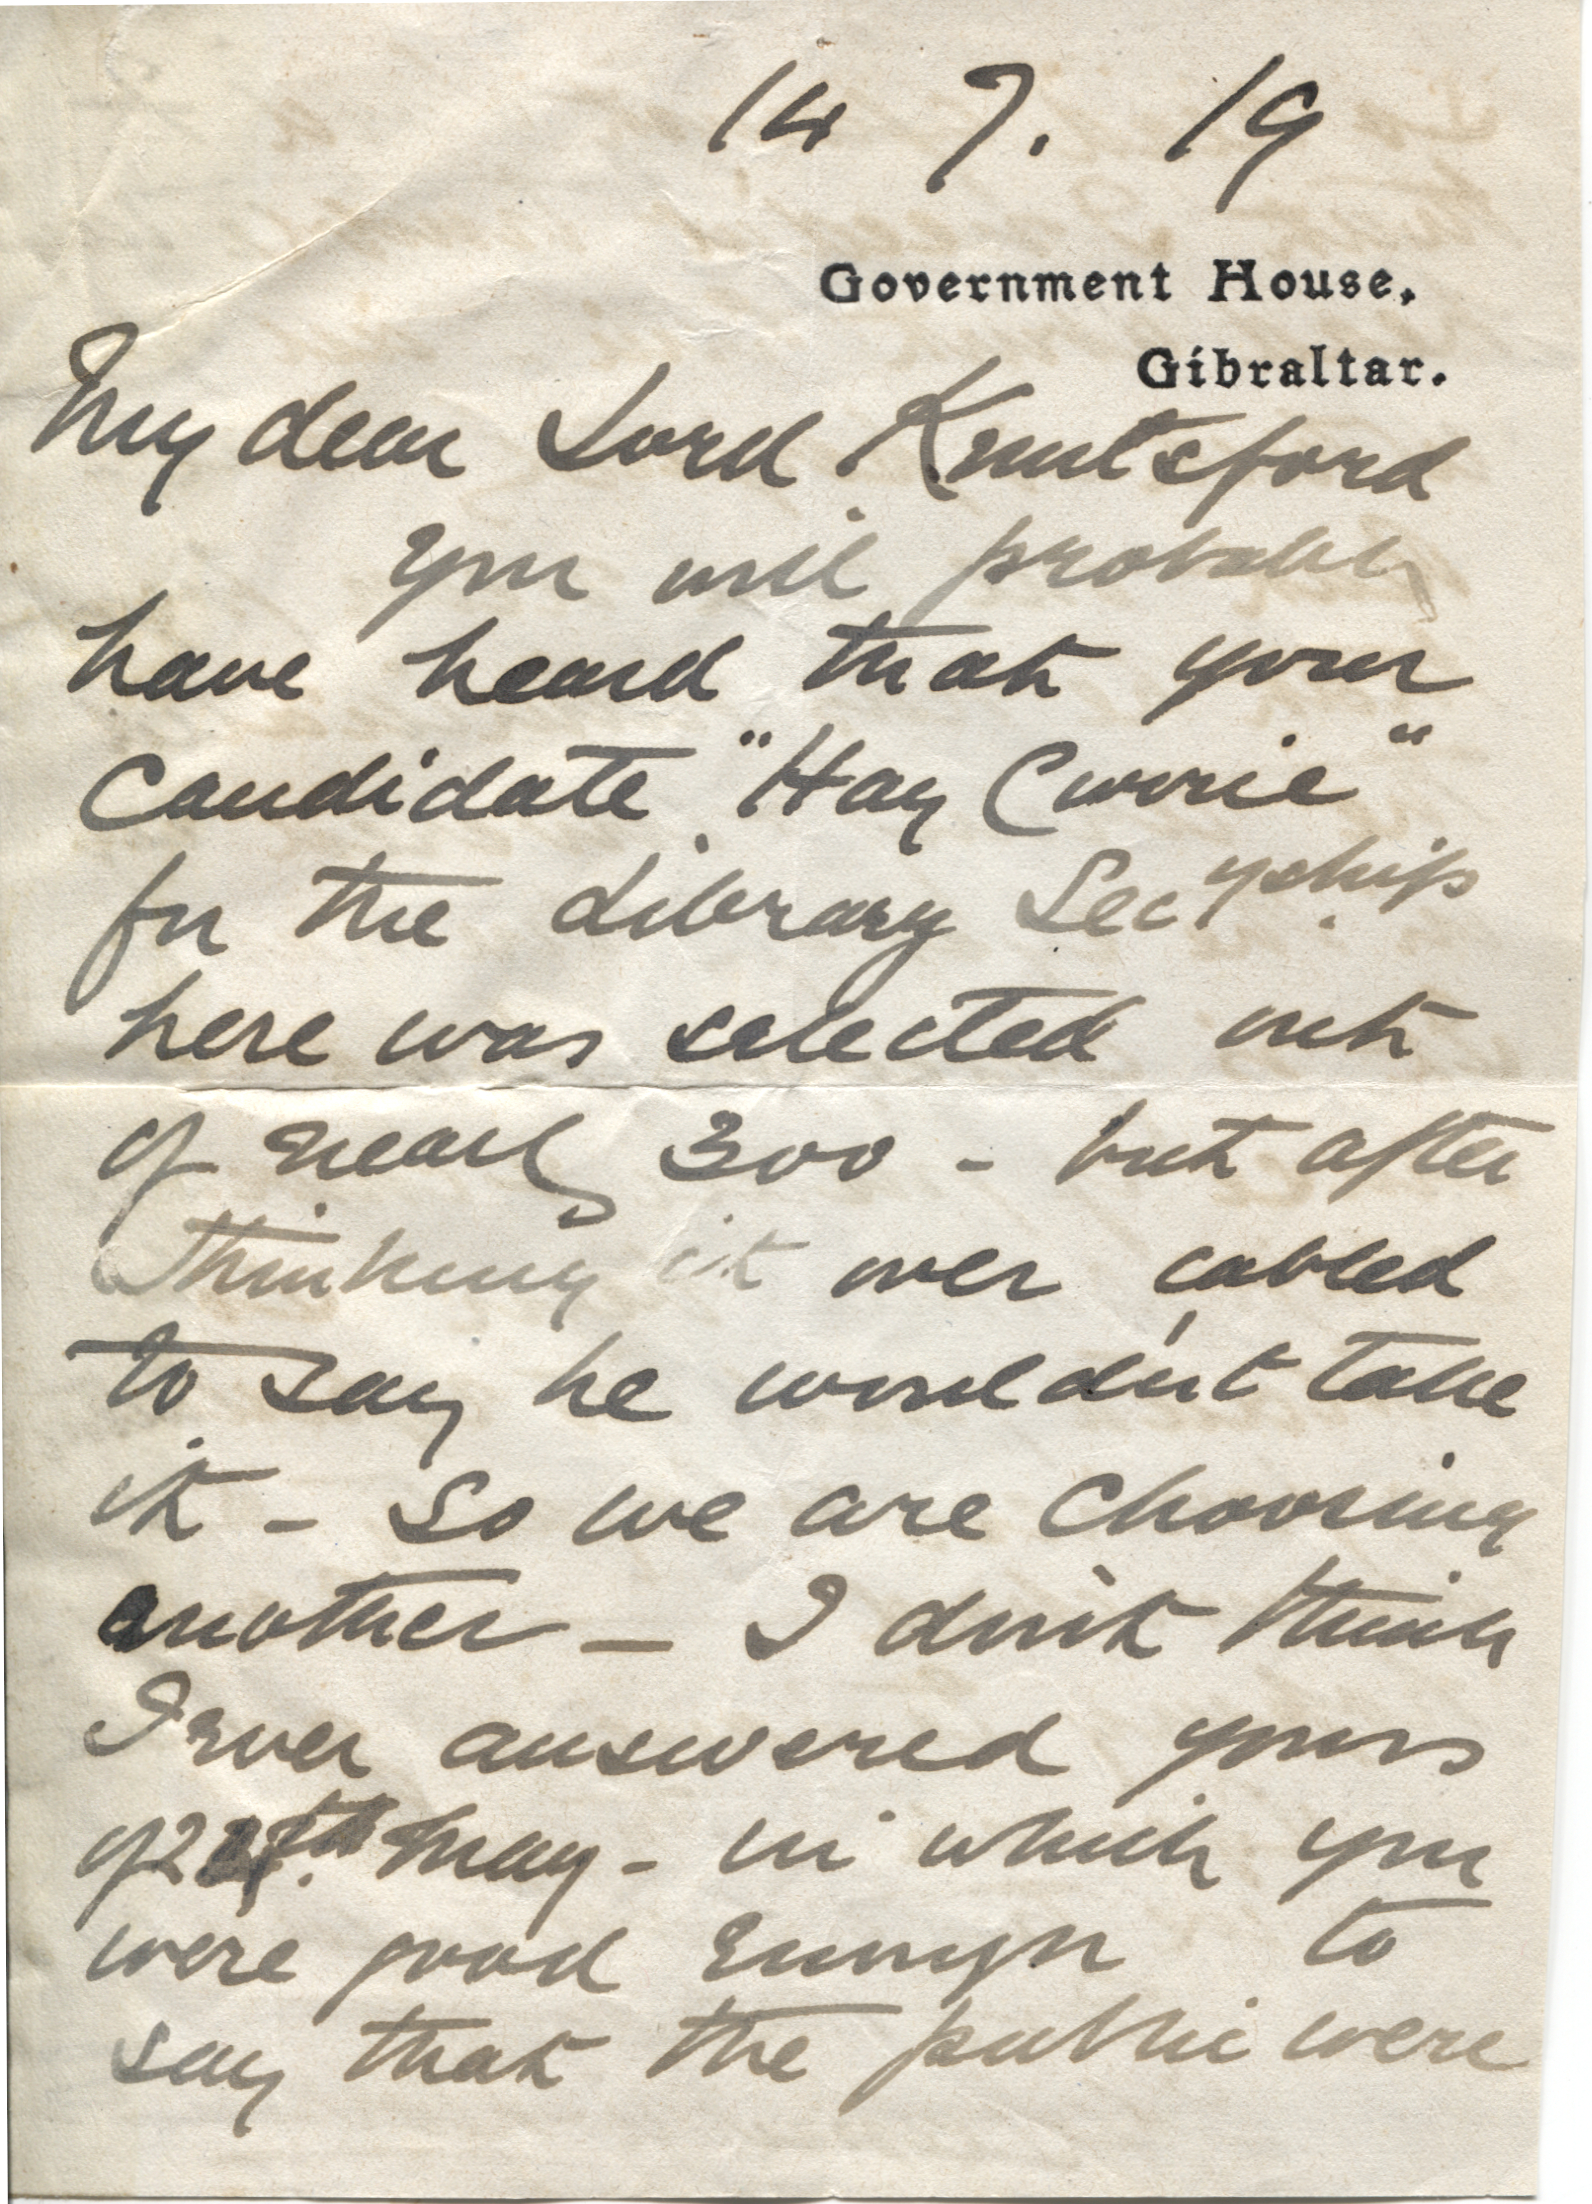 14 7. 19
Government House,
Gibraltar.
My dear Lord Knutsford
you will probably
have heard that your
Candidate "Hay Currie"
for the Library Secyship
here was selected out
of nearly 300 - but after
thinking it over cabled
to say he wouldn't take
it - so we are choosing
another - I don't think
I ever answered yours
of May - in which you
were good enough to
say that the public were